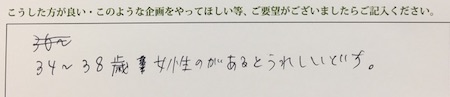 こうした方が良い・このような企画をやってほしい等、ご要望がございましたらご記入ください。
34～38歳 女性のがあるとうれしいです。